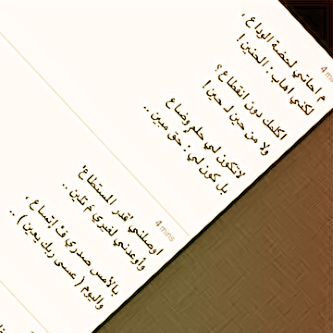 م احاتي لحضة الوداع ،
لكني اهاب : الحنين !
4 mins
اكلمك دون انقطاع ؟
ولا من حين لـ حين !
لاتكون لي حلم وضاع
بل كون لي : حق مبين ..
4 mins
اوصلني لقدر المستطاع'
وأوعدني لغيري م تلين ..
بالأمس صدري ف إتساع ،
واليوم ( عسى ربك يعين ) ..